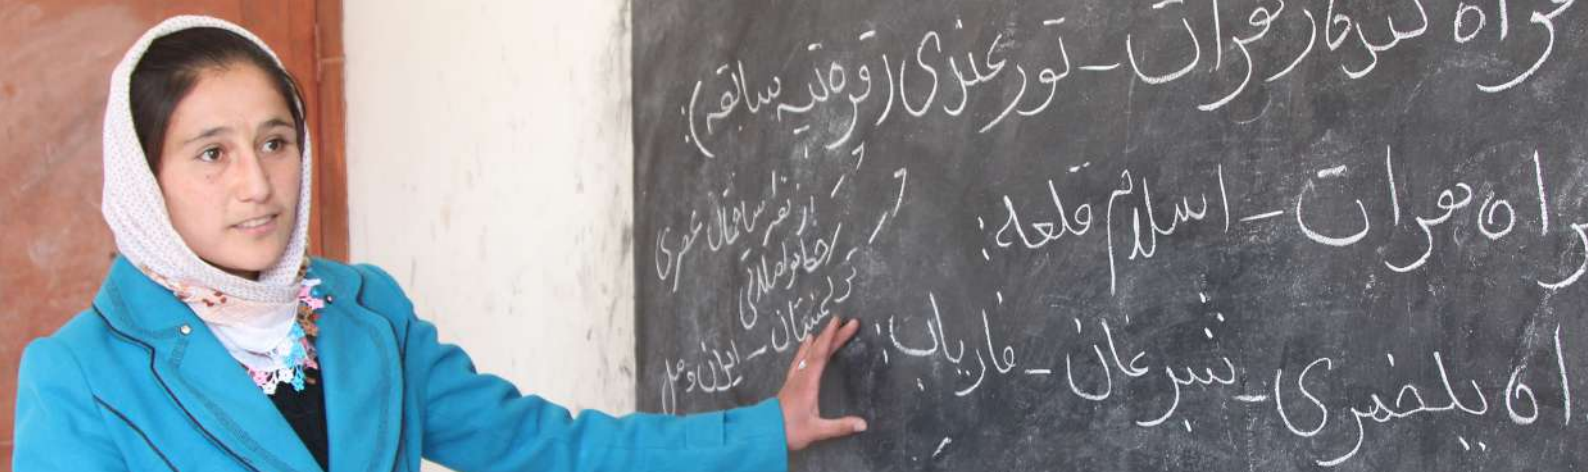 راه کندهار هرات - تورغندی (قره تپه سابقه):
راه هرات - اسلام قلعه:
راه پلخمری - شبرغان - فاریاب:
از نظر ساختمان عصری
خط مواصلاتی
ترکمنستان - ایران و